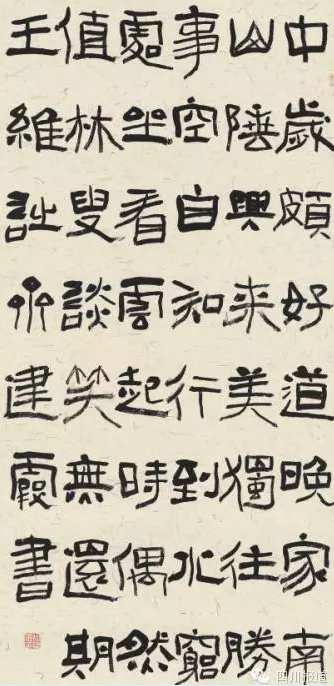 中歲頗好道晚家南
山陲興来美獨往勝
事空自知行到水窮
處坐看雲起時偶然
值林叟談笑無還期
王維詩建霞書
四川报道